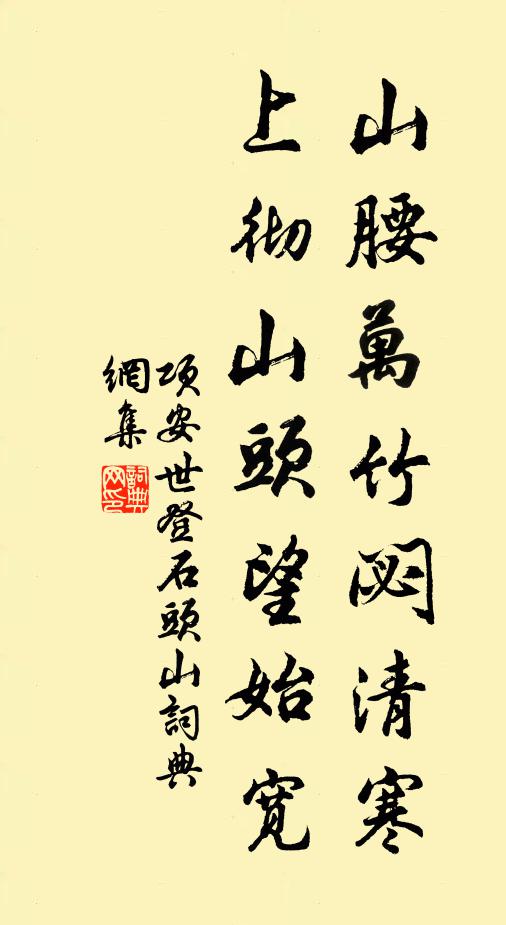 山腰萬竹閟清寒
上彻山頭望始寛
項安世登石頭山詞典
網集
詞典網印